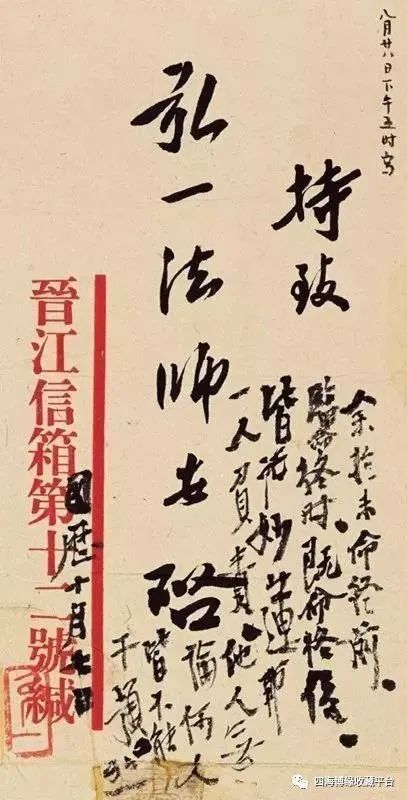 八月廿八日下午五时写
持致
余於未命終前。
臨命終时。既命終後。
皆托妙蓮師
一人負責。他人无
論何人
皆不能
干預
弘一法师安啓
國歷十月七日
晉江信箱第十二號緘
四海博缘收藏平台